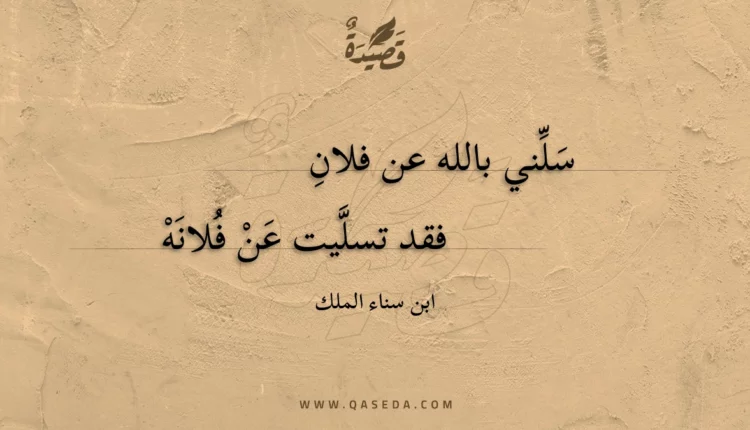 قَصِيدَةٌ
سَلِّني بالله عن فلانِ
فقد تسلَّيت عَنْ فُلانَهْ
ابن سناء الملك
WWW.QASEDA.COM